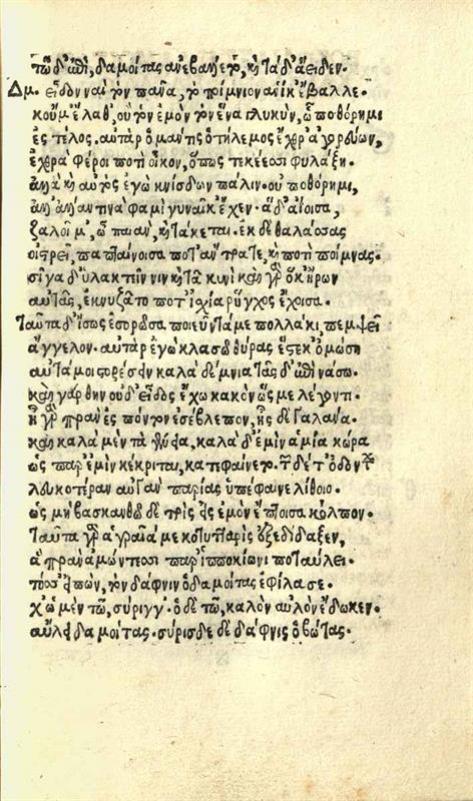 τῷ δ' ἐπὶ, δαμοίτας ἀνεβάλλετο, καὶ τάδ' ἄειδεν.
Δμ. εἶδον ναὶ τὸν πᾶνα, τὸ ποίμνιον ἁνίκ' ἔβαλλε.
κοὔ μ' ἔλαθ', οὐ τὸν ἐμὸν τὸν ἕνα γλυκὺν, ᾧ ποθόρημι
ἐς τέλος. αὐτὰρ ὁ μάντις ὁ τήλεμος ἔχθρ' ἀγορεύων,
ἐχθρὰ φέροι ποτὶ οἶκον, ὅπως τεκέεσσι φυλάξῃ.
ἀλλὰ καὶ αὐτὸς ἐγὼ κνίσδων πάλιν. οὐ ποθόρημι,
ἀλλ' ἄλλαν τινα φαμὶ γυναῖκ' ἔχεν. ἁ δ' ἀΐοισα,
ζαλοῖ μ', ὦ παιὰν, καὶ τάκεται. ἐκ δὲ θαλάσσας
οἰστρεῖ, παπταίνοισα ποτ' ἄντρα τε, καὶ ποτὶ ποίμνας.
σίγα δ' ὑλακτεῖν νιν καὶ τᾷ κυνὶ καὶ γὰρ ὅκ' ἤρων
αὐτᾶς, ἐκνυζᾶτο ποτ' ἰσχία ῥύγχος ἔχοισα.
Ταῦτα δ' ἴσως ἐσορῶσα ποιεῦντά με πολλάκι, πεμψεῖ
ἄγγελον. αὐτὰρ ἐγὼ κλασῶ θύρας ἔστε κ' ὀμόσῃ
αὐτά μοι στορέσειν καλὰ δέμνια τᾶσδ' ἐπὶ νάσω.
καὶ γάρ θην οὐδ' εἶδος ἔχω κακὸν ὥς με λέγοντι.
ἦ γὰρ πρὰν ἐς πόντον ἐσέβλεπον, ἦς δὲ γαλάνα.
καὶ καλὰ μὲν τὰ γένεια, καλὰ δ' ἐμὶν ἁ μία κώρα
ὡς παρ' ἐμὶν κέκριται, κατεφαίνετο. τῶν δέ τ' ὀδόντων
λευκοτέραν αὐγὰν παρίας ὑπέφαινε λίθοιο.
ὡς μὴ βασκανθῶ δὲ τρὶς εἰς ἐμὸν ἔπτυσα κόλπον.
Ταῦτα γὰρ ἁ γραία με κοτυτταρὶς ἐξεδίδαξεν,
ἃ πρὰν ἀμώντεσσι παρ' ἱπποκίωνι ποταύλει.
τόσσ' εἰπὼν, τὸν δάφνιν ὁ δαμοίτας ἐφίλασε.
χὡ μὲν τῷ, σύριγγ'. ὁ δὲ τῷ, καλὸν αὐλὸν ἔδωκεν.
αὔλει δαμοίτας. σύρισδε δὲ δάφνις ὁ βώτας.